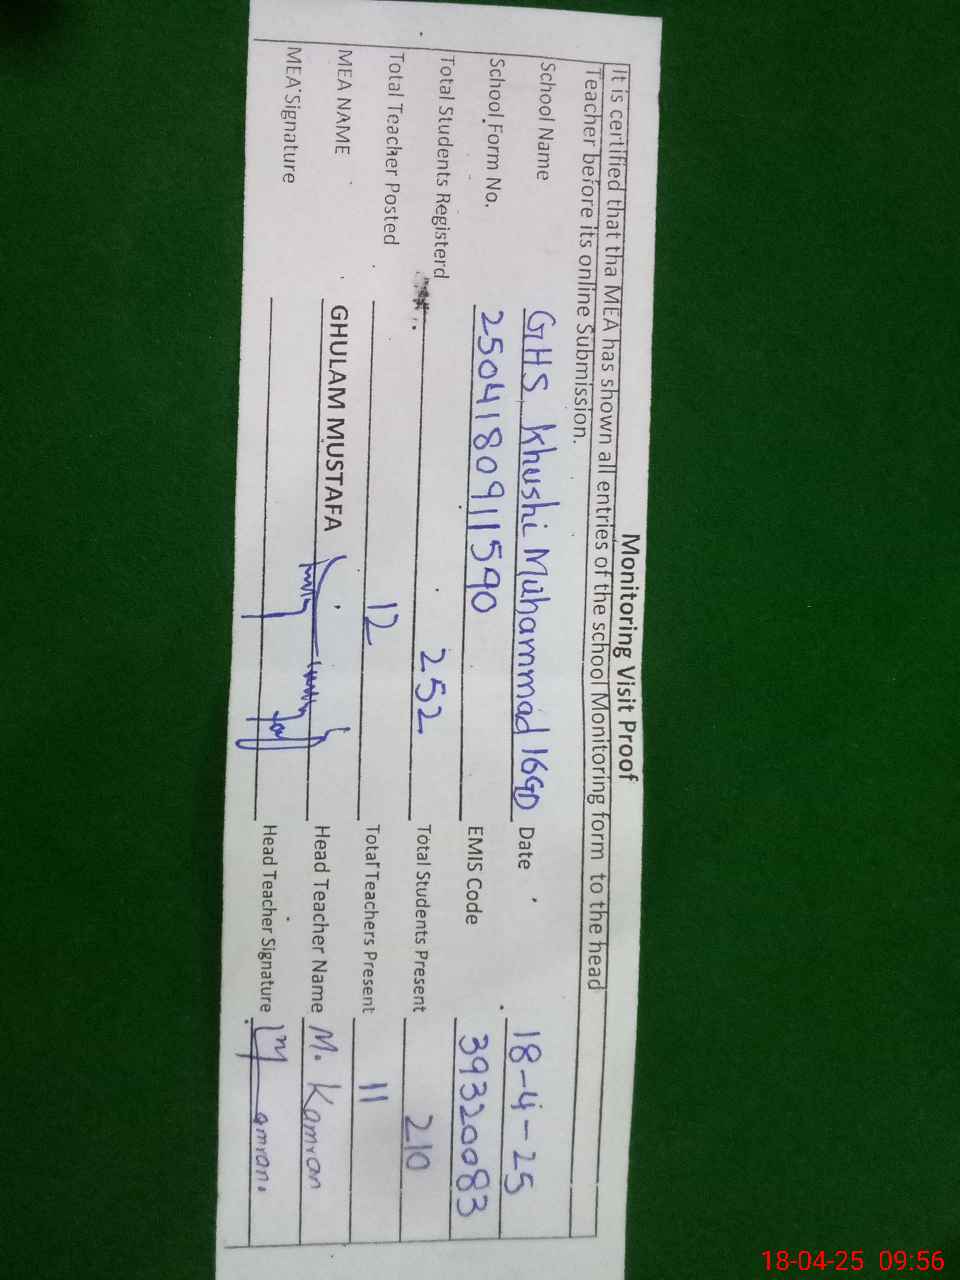 Monitoring Visit Proof
It is certified that tha MEA has shown all entries of the school Monitoring form to the head
Teacher before its online Submission.
School Name GHS, Khushi Muhammad 16GD Date 18-4-25
School Form No. 2504180911590 EMIS Code 39320083
Total Students Registerd 252 Total Students Present 210
Total Teacher Posted 12 Total Teachers Present 11
MEA NAME GHULAM MUSTAFA Head Teacher Name M. Kamran
MEA Signature Head Teacher Signature
18-04-25 09:56